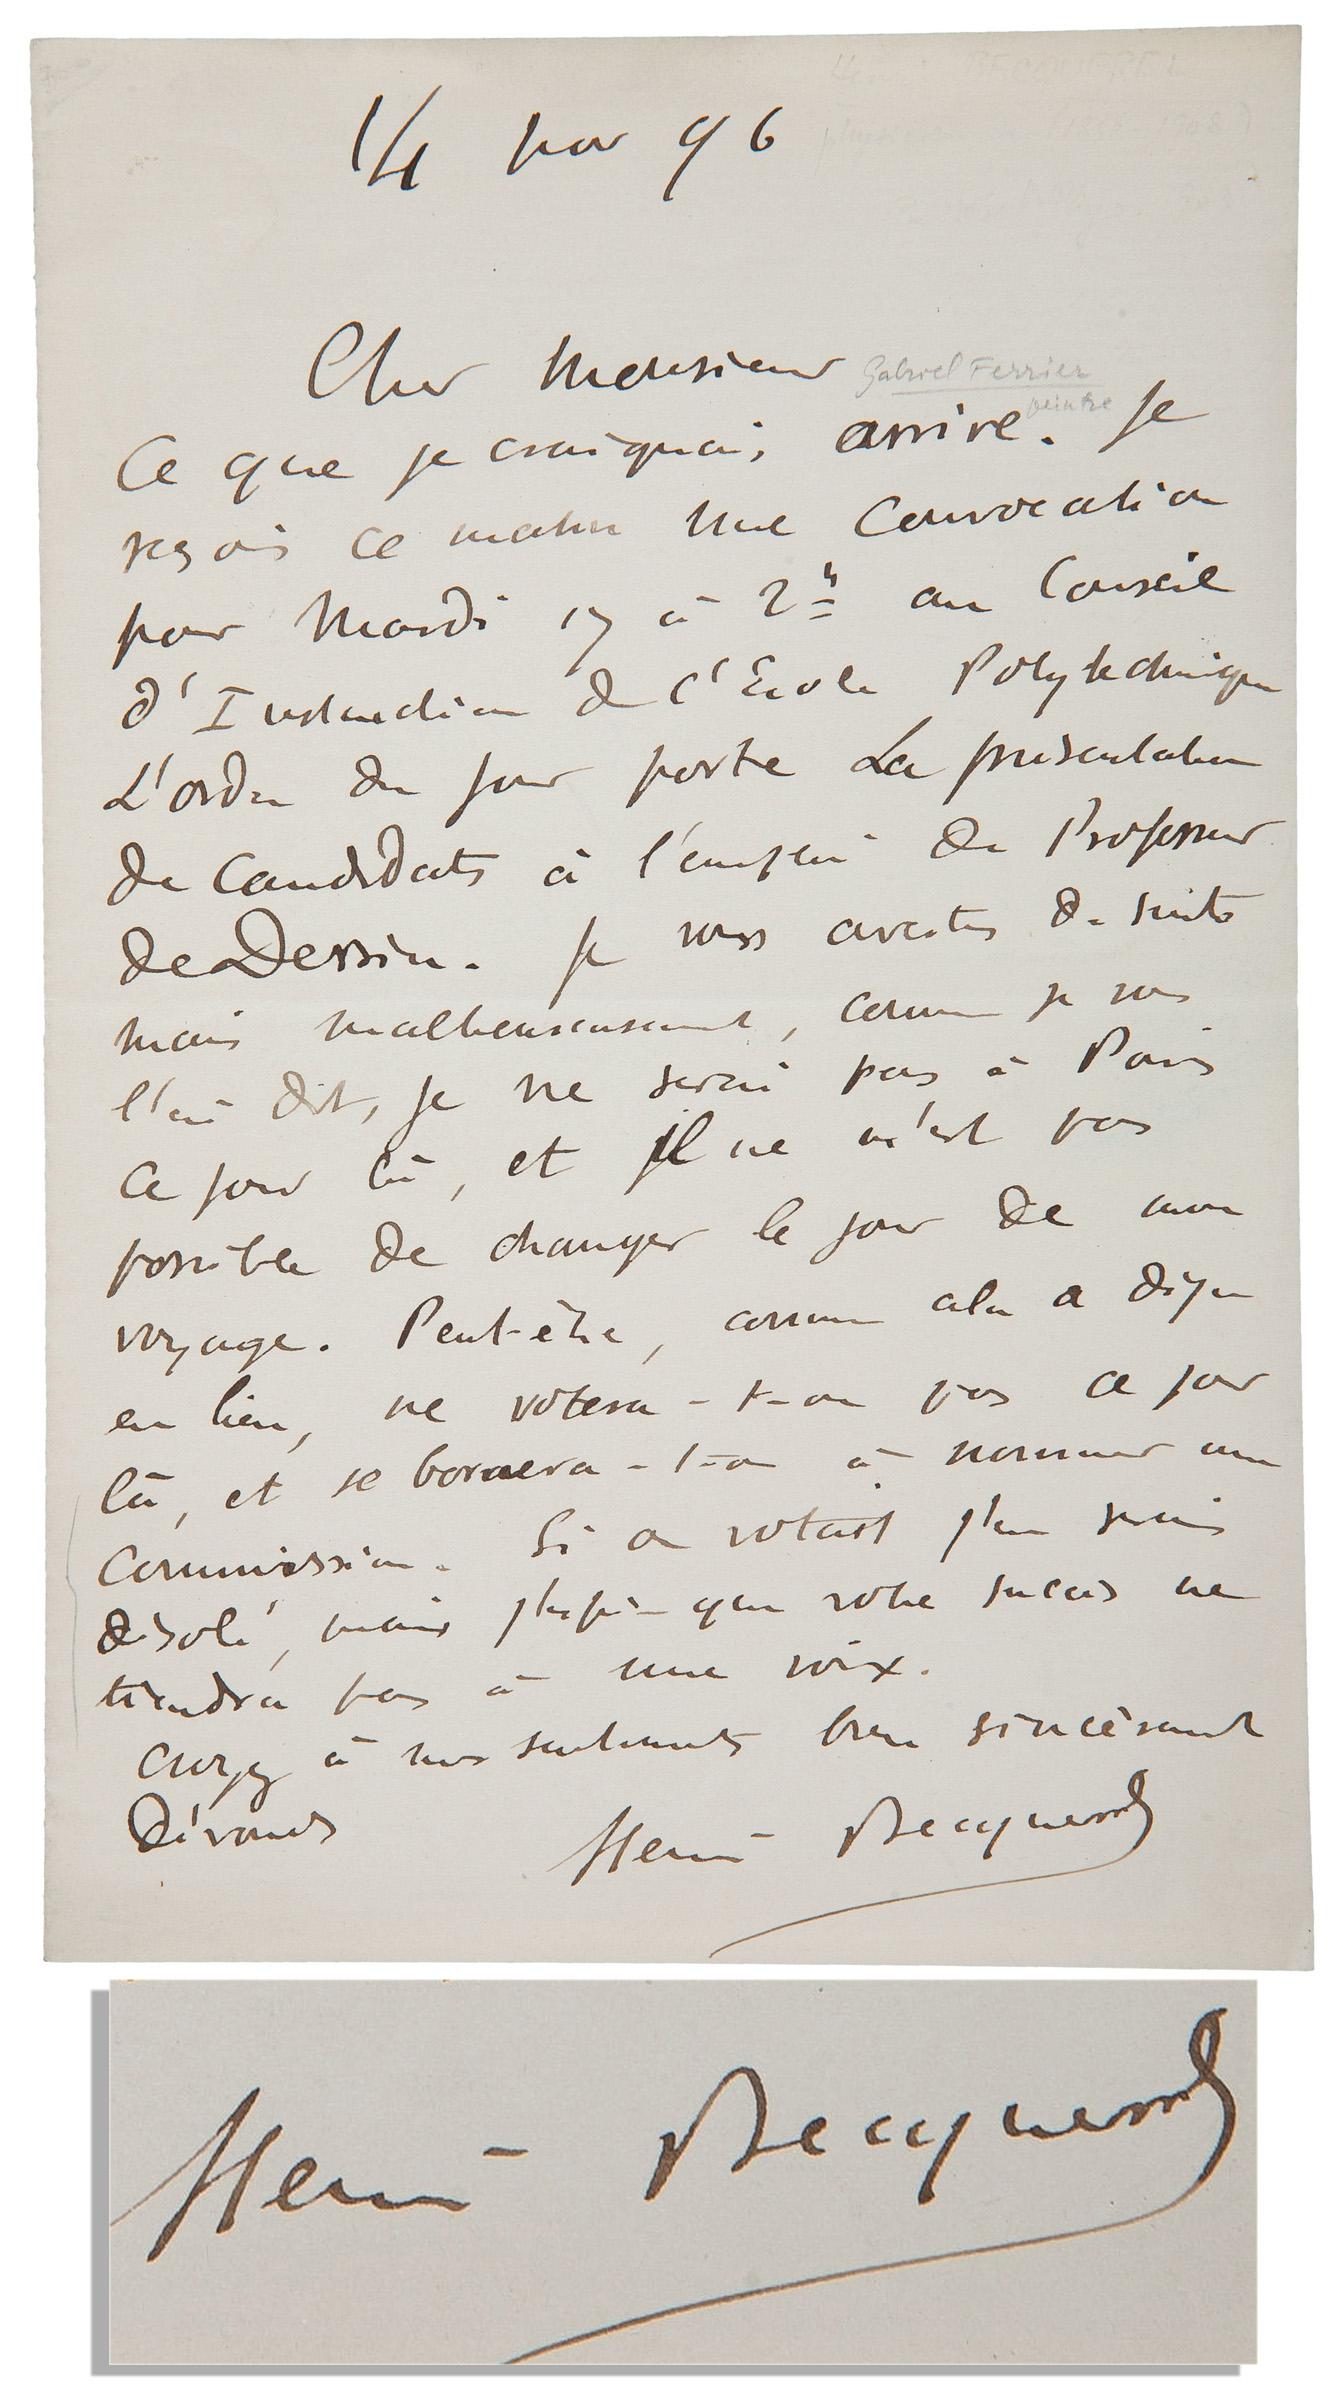 14 nov 96
Cher Monsieur Gabriel Ferrier
peintre
Ce que je craignais arrive. Je
reçois ce matin une convocation
pour Mardi 17 à 2h au Conseil
d'Instruction de l'Ecole Polytechnique
L'ordre du jour porte La présentation
de Candidats à l'emploi de Professeur
de Dessin. Je vous avertis de suite
mais malheureusement, comme je vous
l'ai dit, je ne serai pas à Paris
ce jour là, et il ne m'est pas
possible de changer le jour de mon
voyage. Peut-être, comme cela a déjà
eu lieu, ne votera-t-on pas ce jour
là, et se bornera-t-on à nommer une
Commission. Si on votait j'en serais
désolé, mais j'espère que votre succès ne
tiendra pas à une voix.
Croyez à mes sentiments bien sincèrement
dévoués
Henri Becquerel
Henri Becquerel